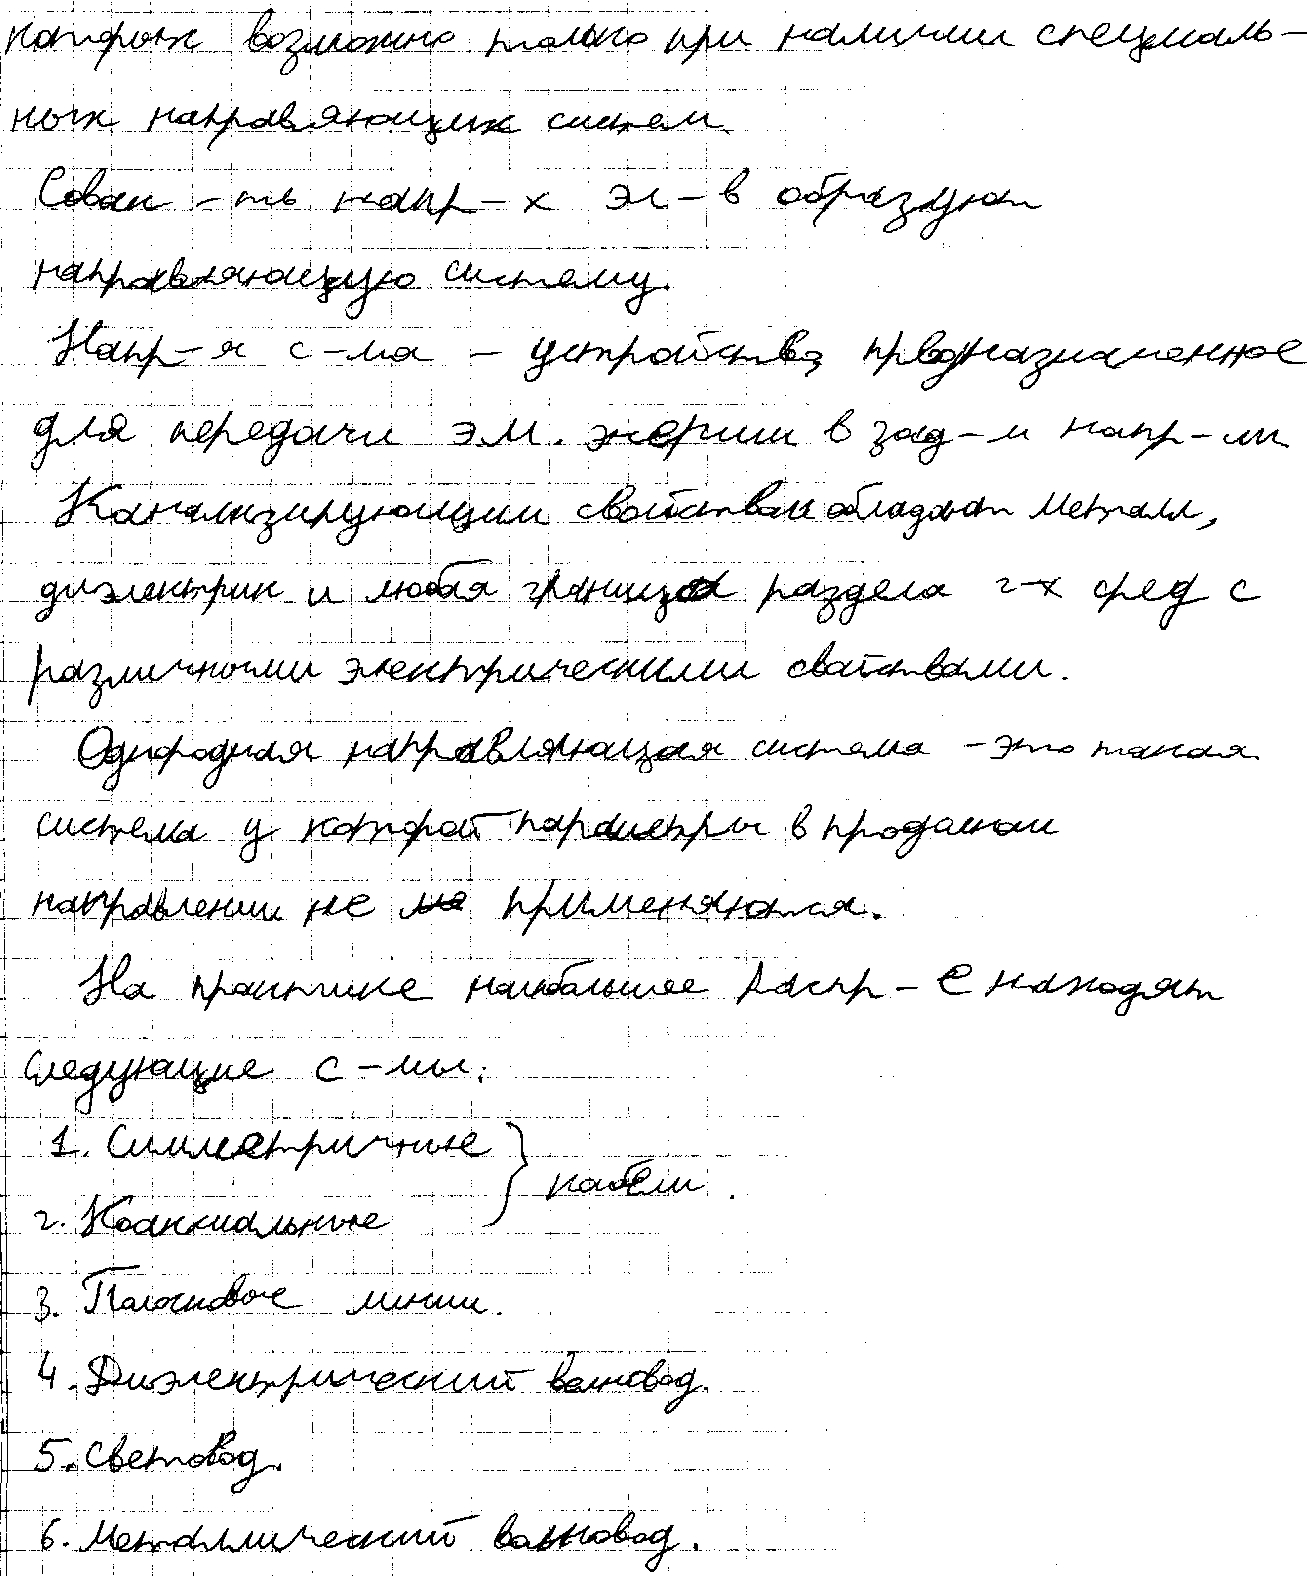 которых возможно только при наличии специаль-
ных направляющих систем.
Совок-ть напр-х эл-в образуют
направляющую систему.
Напр-я с-ма - устройство, предназначенное
для передачи эл. энергии в зад-м напр-ии
Канализирующим свойствам обладают металл,
диэлектрик и любая граница раздела 2-х сред с
различными электрическими свойствами.
Однородная направляющая система - это такая
система у которой параметры в продольном
направлении не применяются.
На практике наибольшее распр-е находят
следующие с-мы:
1. Симметричные
кабели.
2. Коаксиальные
3. Полосковые линии.
4. Диэлектрический волновод.
5. Световод.
6. Металлический волновод.